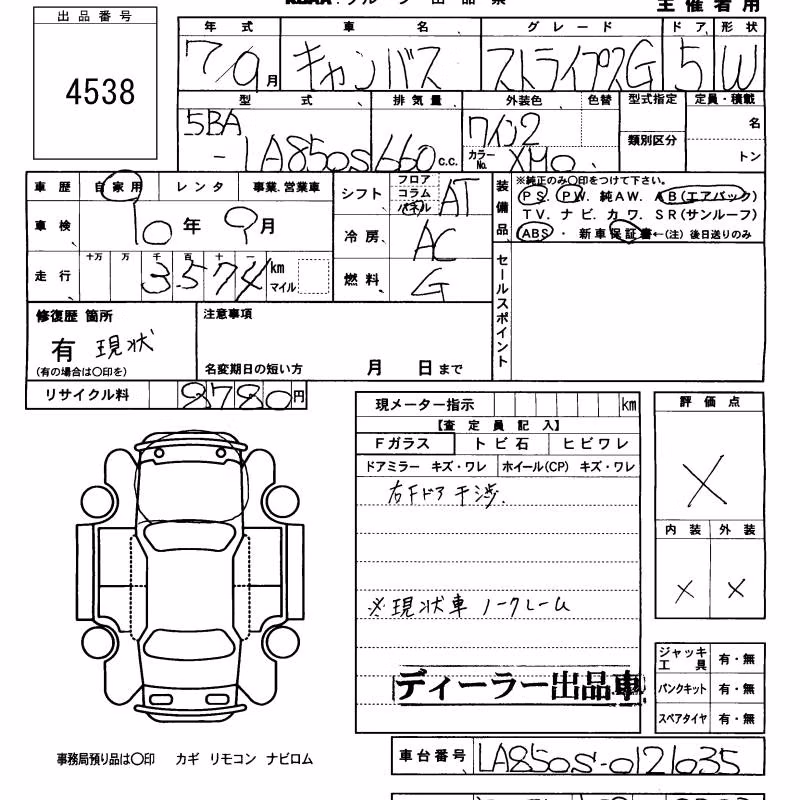 グループ出品票
主催者用
出品番号
4538
年式 車名 グレード ドア 形状
7/9月 キャンバス ストライプスG 5 W
型式 排気量 外装色 色替 型式指定 定員・積載
5BA
-LA850S 660 c.c. ワイン2 類別区分 名
カラーNo. トン
車歴 自家用 レンタ 事業.営業車
車検 10年9月
走行 十万 万 千 百 十 一
3574 km マイル
シフト フロア コラム パネル AT
冷房 AC
燃料 G
装備品 ※純正のみ〇印をつけて下さい。
PS. PW. 純AW. AB(エアバック)
TV. ナビ. カワ. SR(サンルーフ)
ABS・新車保証書←(注)後日送りのみ
セールスポイント
修復歴 箇所
有 現状
(有の場合は〇印を)
注意事項
名変期日の短い方 月 日まで
リサイクル料 8780円
現メーター指示 km
【査定員記入】
Fガラス トビ石 ヒビワレ
ドアミラー キズ・ワレ ホイール(CP) キズ・ワレ
右Fドア干渉.
※現状車 ノークレーム
ディーラー出品車
評価点
X
内装 外装
X X
ジャッキ工具 有・無
パンクキット 有・無
スペアタイヤ 有・無
事務局預り品は〇印 カギ リモコン ナビロム
車台番号 LA850S-0121035